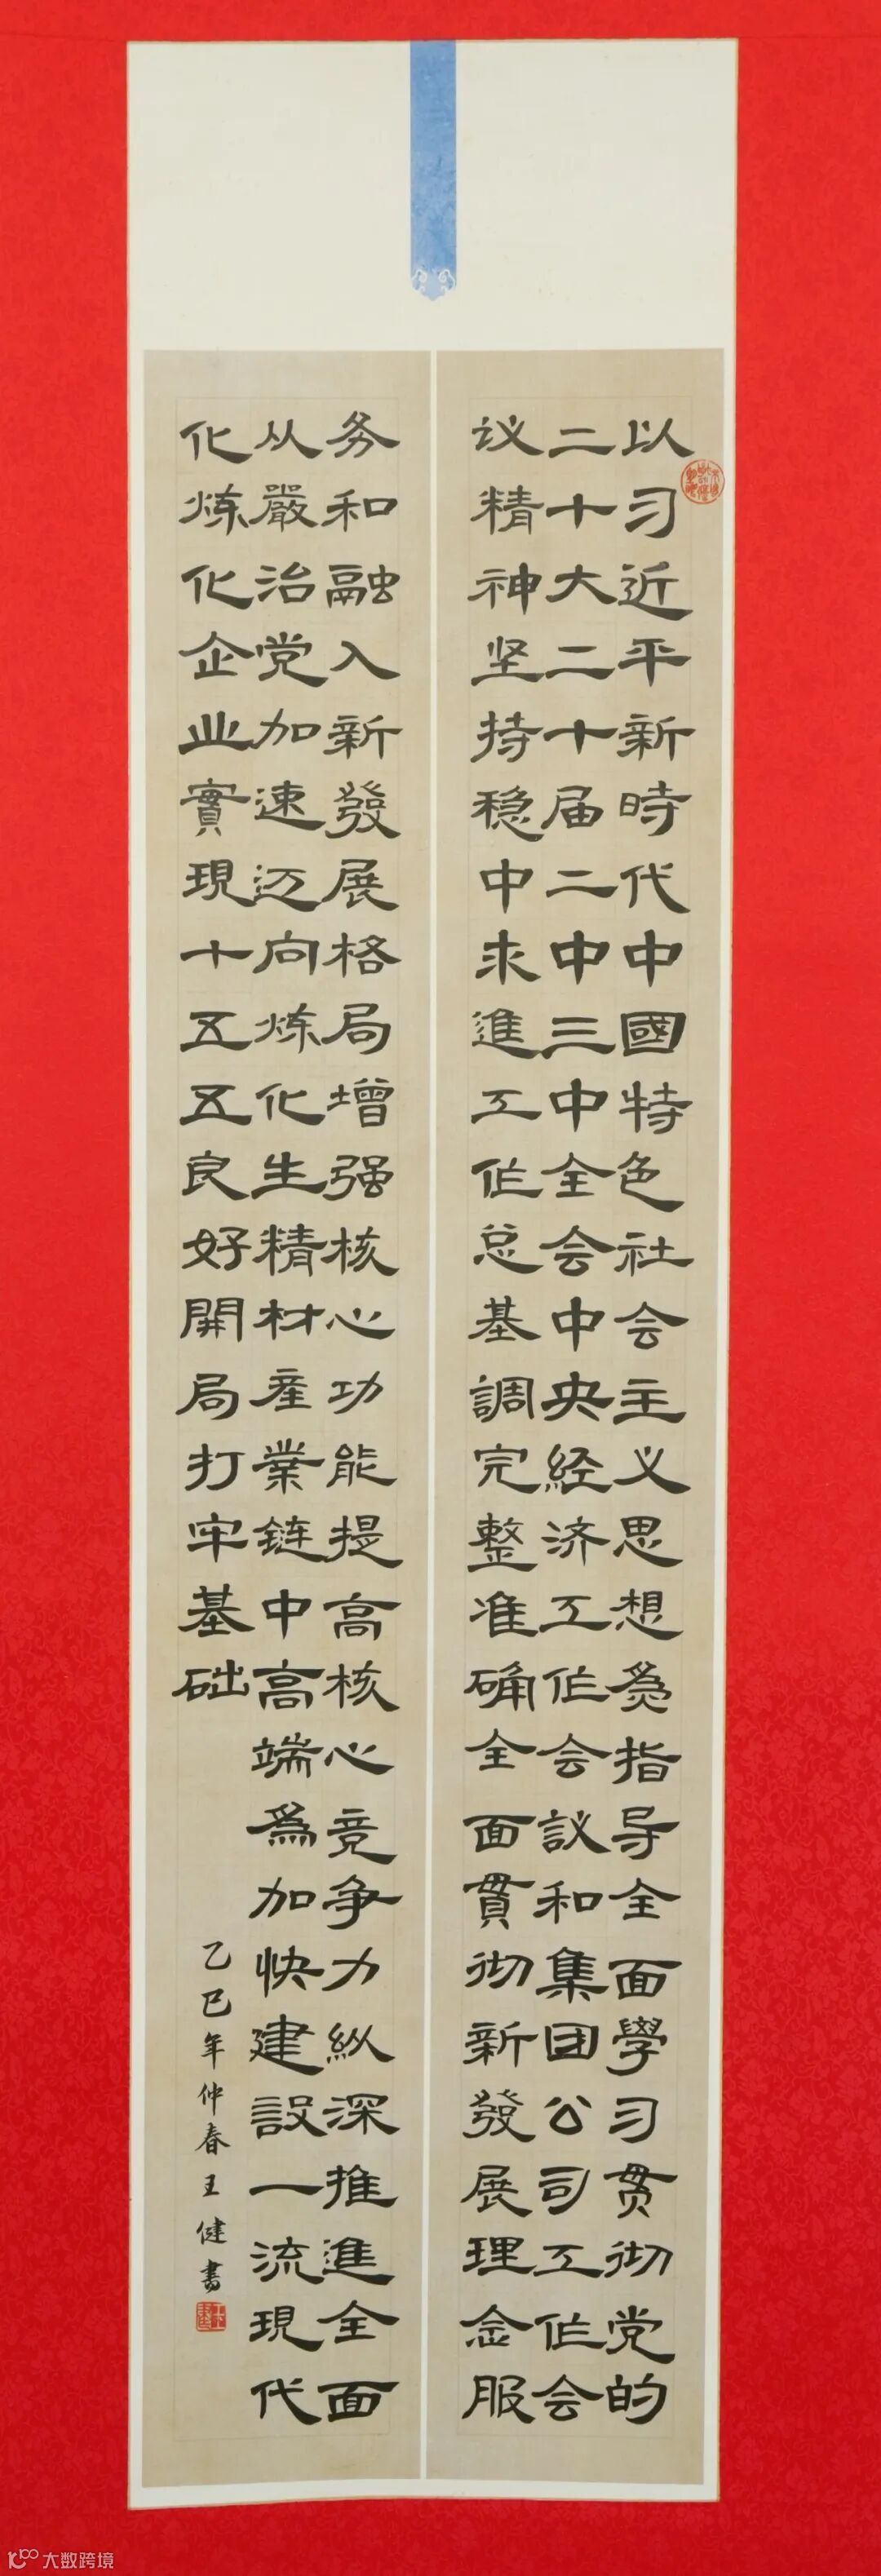 以习近平新時代中國特色社会主义思想為指导全面學习贯彻党的
二十大二十届二中三中全会中央经济工作会议和集团公司工作会
议精神坚持稳中求進工作总基調完整准确全面貫彻新發展理念服
务和融入新發展格局增强核心功能提高核心竞争力纵深推進全面
从嚴治党加速迈向炼化生精材産業链中高端為加快建設一流現代
化炼化企业實現十五五良好開局打牢基础
乙巳年仲春王健書
大数跨境